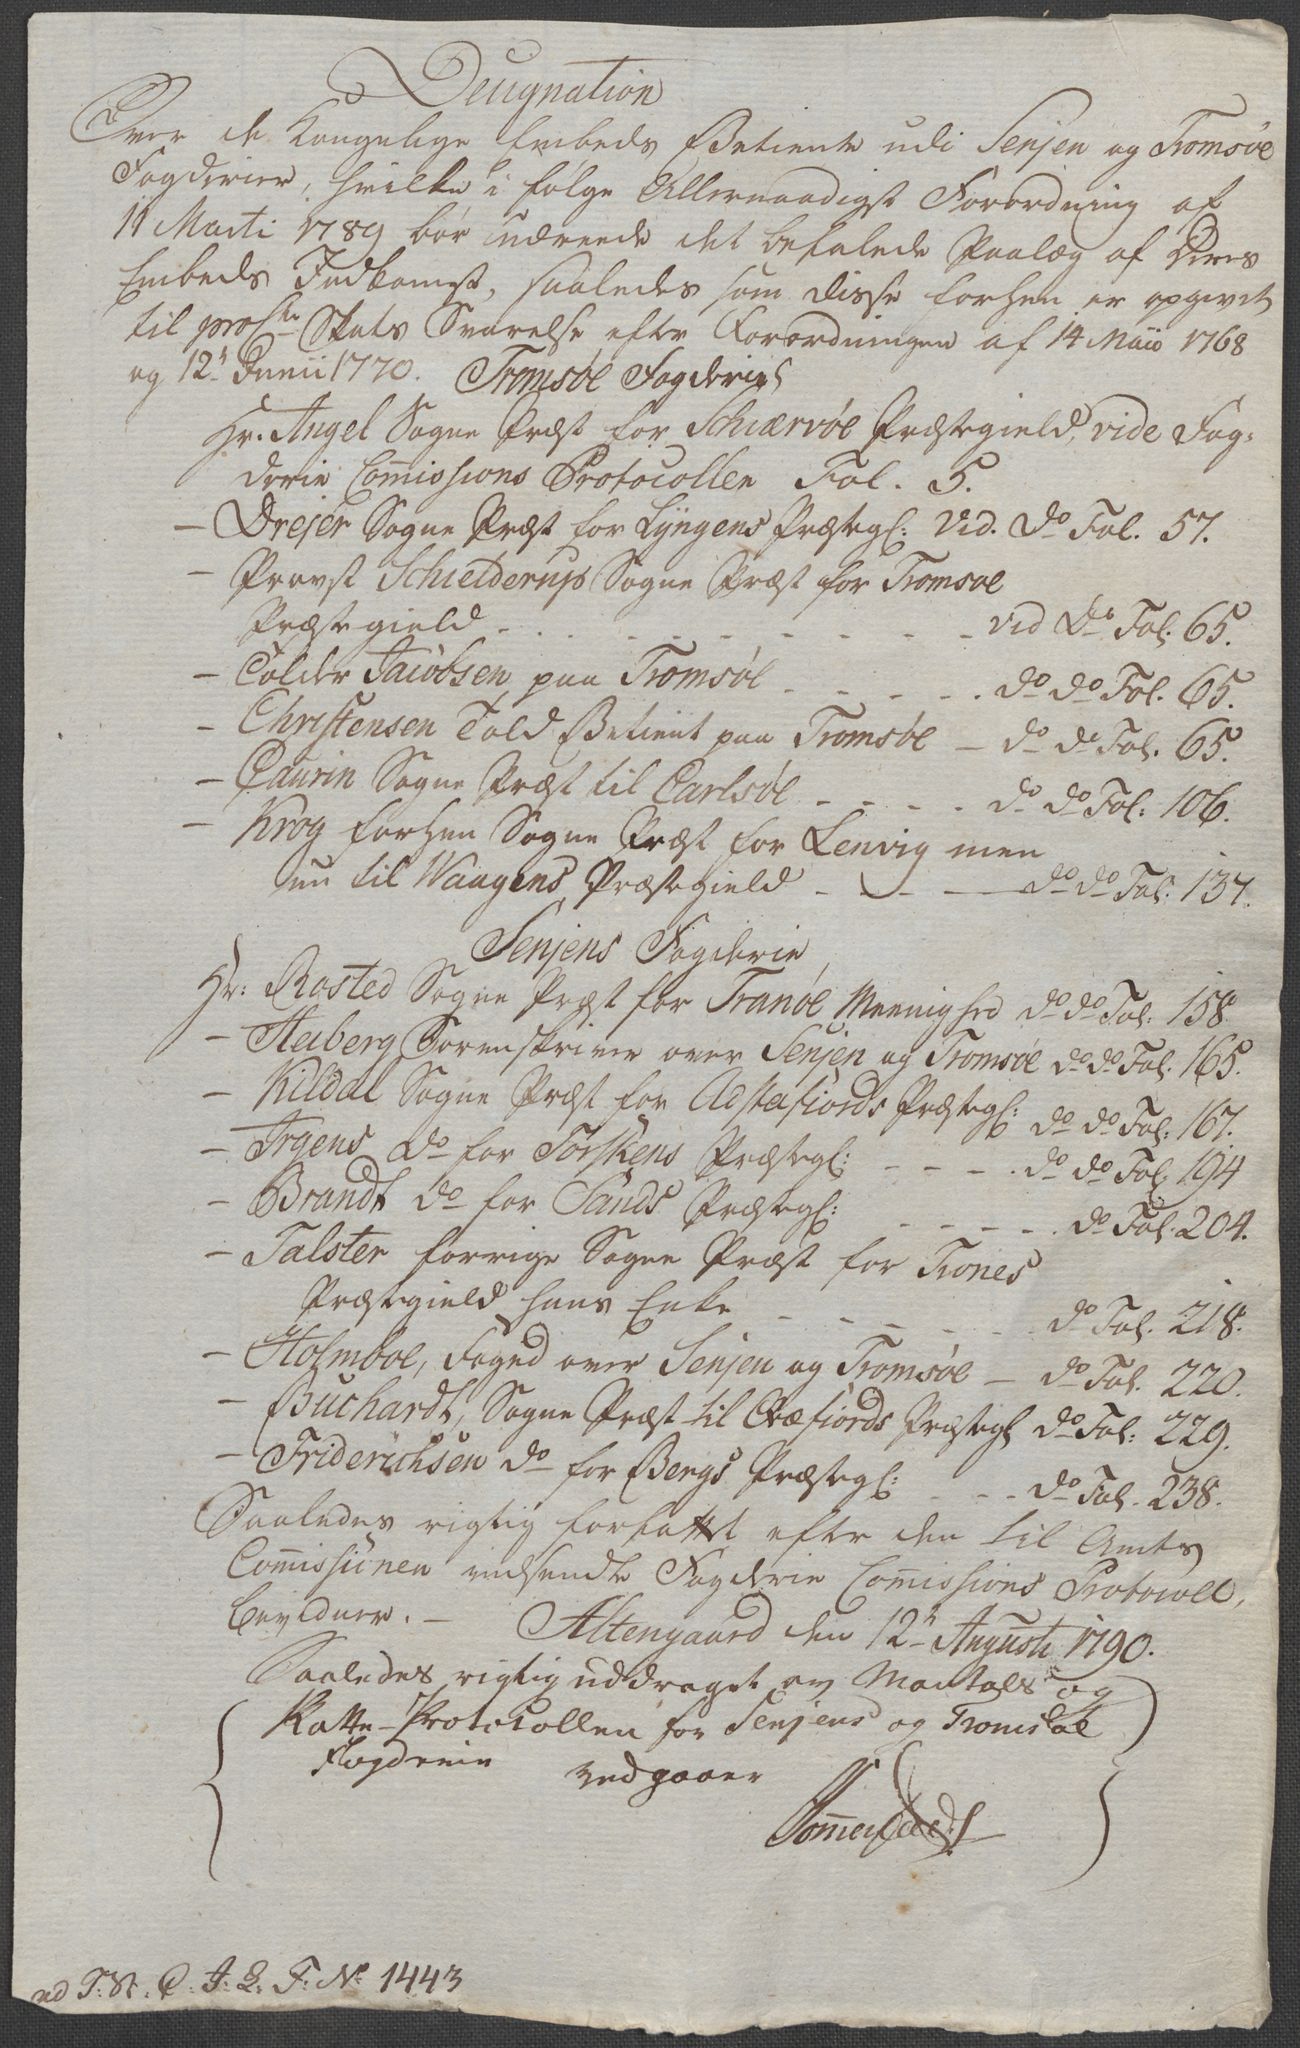 Designation
Over de Kongelige Embeds Betiente udi Senjen og Tromsøe
Fogderier, hvilke i følge Allernaadigst Forordning af
11 Marti 1789 bør udreede det befalede Paalæg af deres
Embeds Indkomst, saaledes som disse forhen er opgivet
til Skats Svarelse efter Forordningen af 14 Maii 1768
og 12 Junii 1770. Tromsøe Fogderie
Hr. Angel Sogne Præst for Schiervøe Præstegield, vide Fog-
derie Com̄issions Protocollen Fol. 5.
— Drejer Sogne Præst for Lyngens Præstegl: Vid. Do Fol. 57.
— Provst Schielderups Sogne Præst for Tromsøe
Præstegield - - - - - vid Do Fol. 65.
— Tolder Jacobsen paa Tromsøe - - - - do do Fol. 65.
— Christensen Told Betient paa Tromsøe — do do Fol. 65.
— Caurin Sogne Præst til Carlsøe - - - - do do Fol: 106.
— Krog forhen Sogne Præst for Lenvig men
nu til Waagens Præstegield - - - do do Fol. 137.
Senjens Fogderie
Hr: Rosted Sogne Præst for Tranøe Meenighed do do Fol: 158.
— Heiberg Sorenskriver over Senjen og Tromsøe do do Fol. 165.
— Kildal Sogne Præst for Astafiords Præstegl: do do Fol: 167.
— Irgens do for Torskens Præstegl: - - - - do do Fol. 194
— Brandt do for Sands Præstegl: - - - - do Fol. 204.
— Falster forrige Sogne Præst for Trones
Præstegield hans Enke - - - - - do Fol. 218.
— Holmboe, Foged over Senjen og Tromsøe — do Fol. 220.
— Buchardt, Sogne Præst til Qvæfiords Præstegl do Fol: 229.
— Friderichsen do for Bergs Præstegl: - - - do Fol. 238.
Saaledes rigtig forfattet efter den til Amts
Com̄issionen indsendte Fogderie Com̄issions Protocoll,
bevidner. — Altengaard den 12 Augusti 1790.
Saaledes rigtig uddraget av Mantals og
Skatte-Protocollen for Senjens og Tromsøe
Fogderie vedgaaer
Som̄erfeldt
ad T: F: No 1443